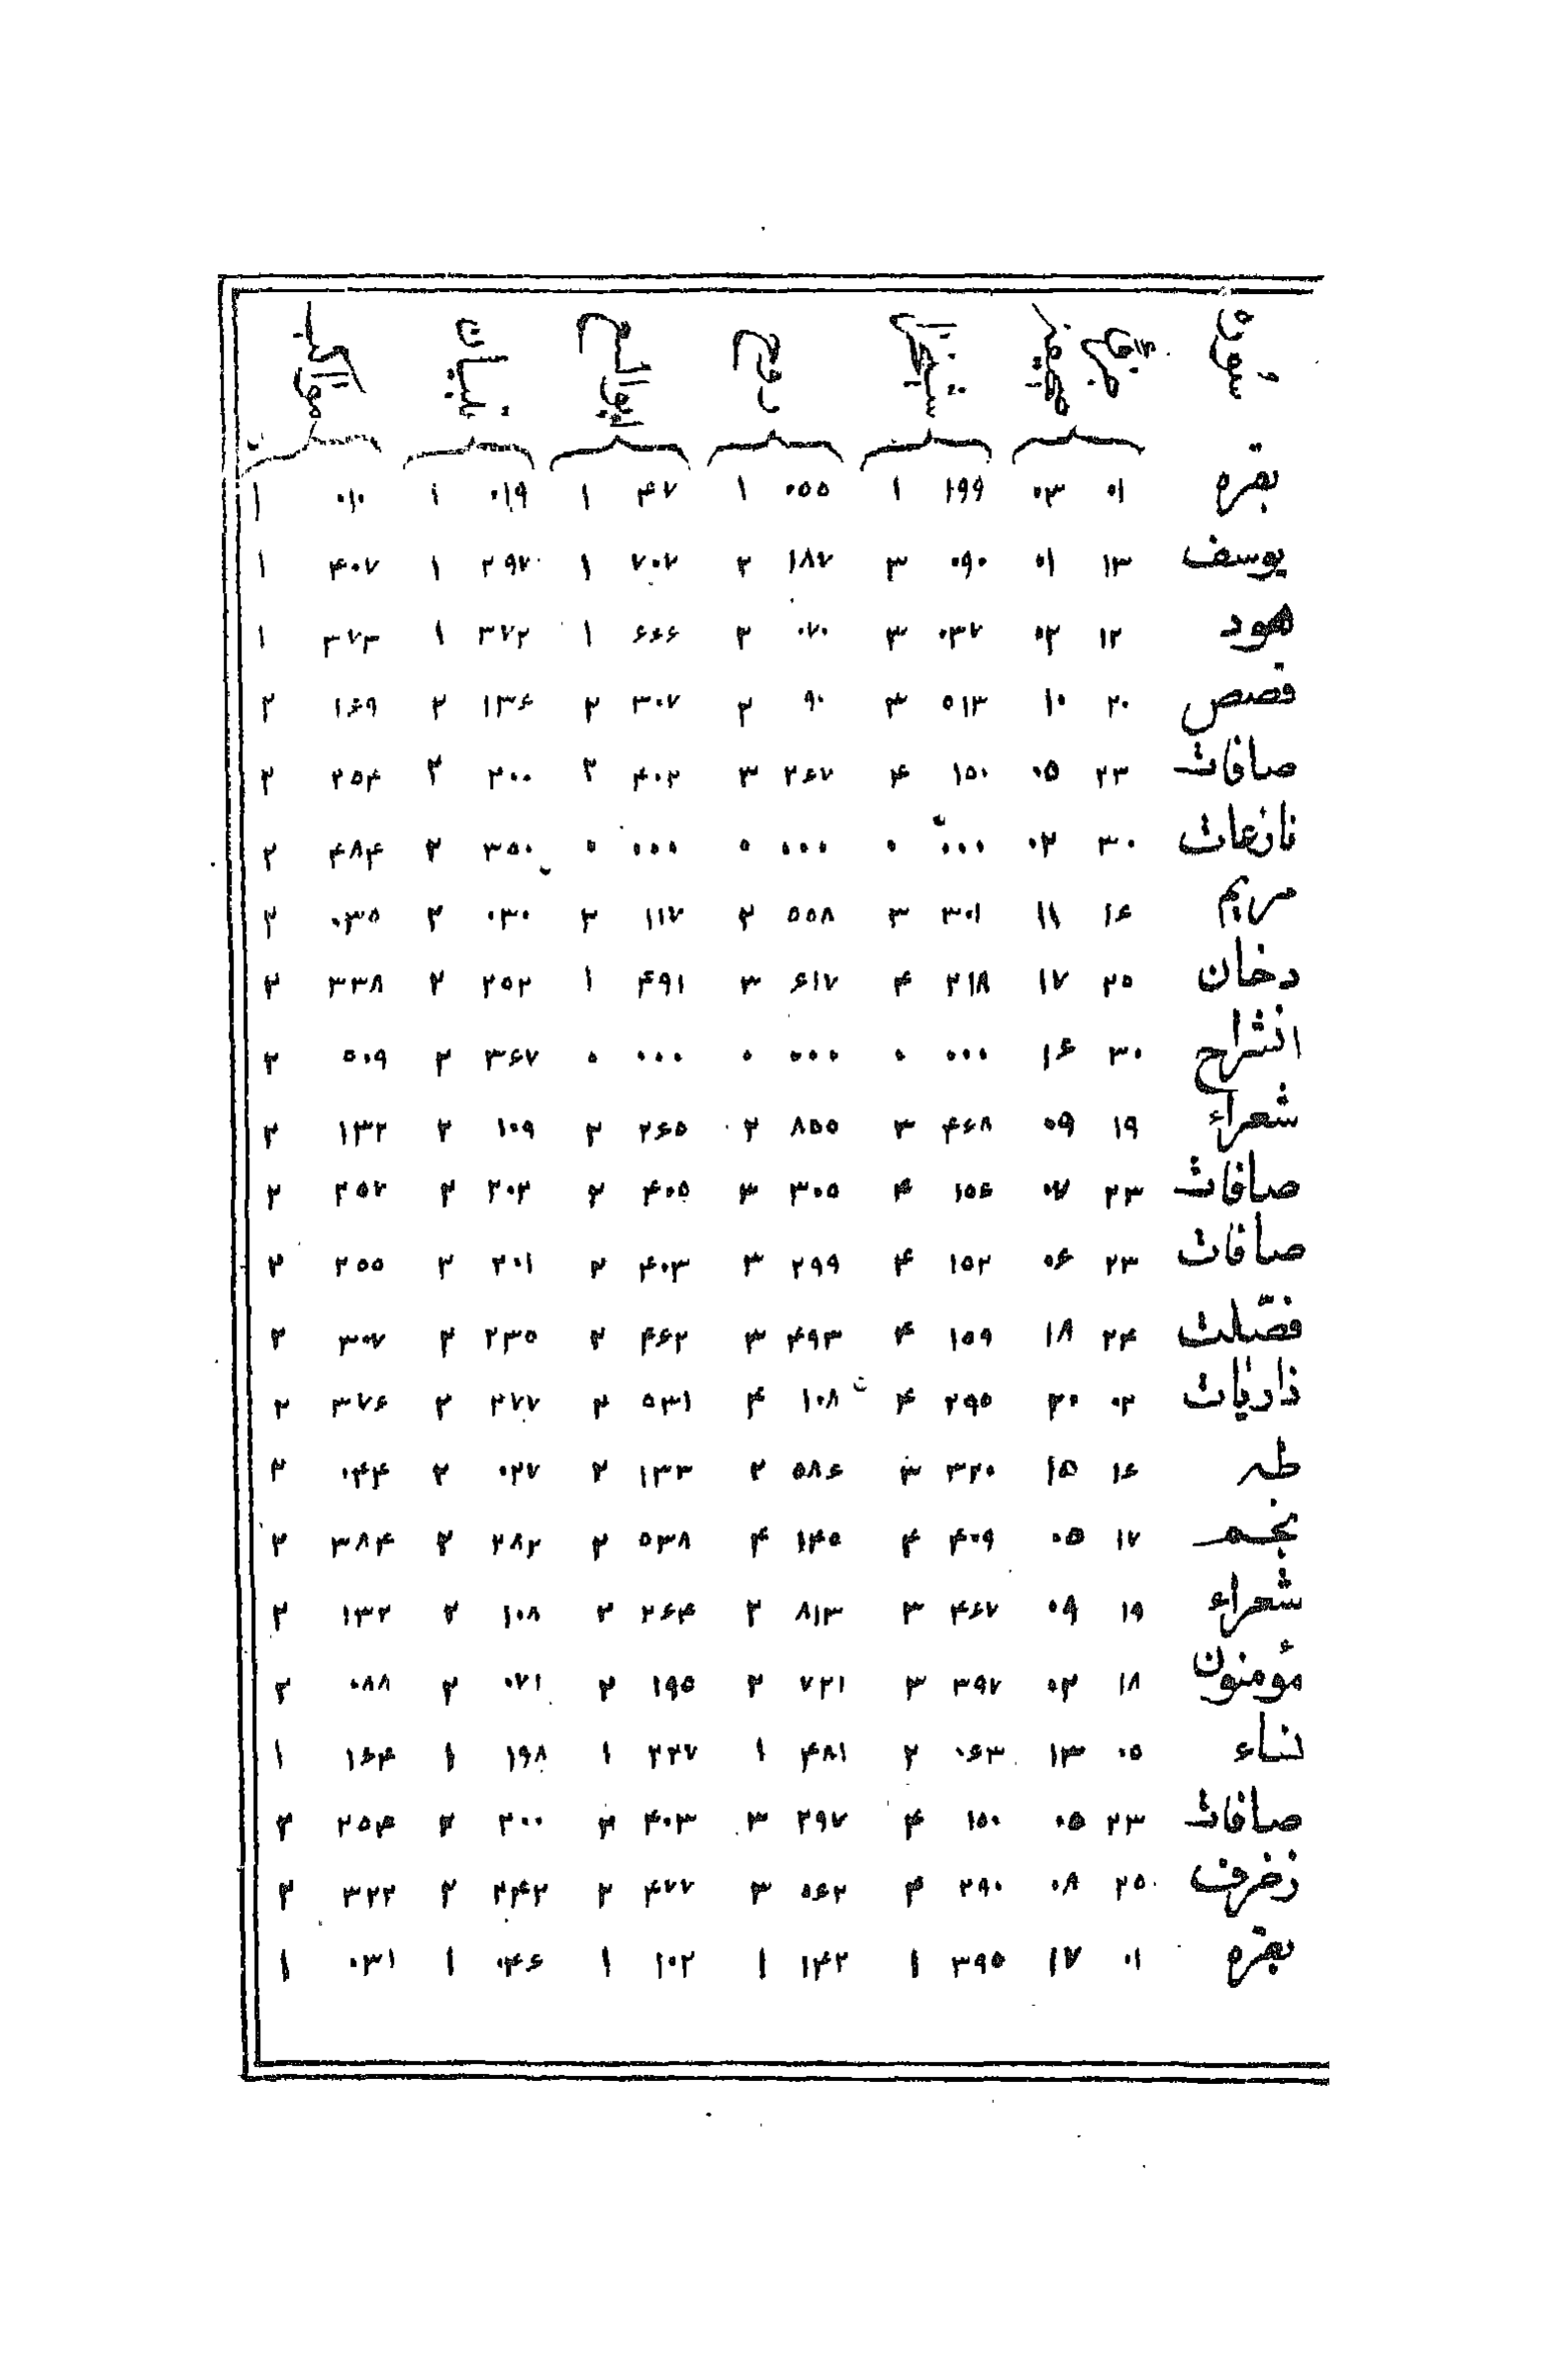 بقره ۰۱ ۰۳ ۱۹۹ ۱ ۰۵۵ ۱ ۴۷ ۱ ۰۱۹ ۱ ۰۱۰ ۱
یوسف ۱۳ ۰۱ ۰۹۰ ۳ ۱۸۷ ۲ ۷۰۷ ۱ ۲۹۷ ۱ ۴۰۷ ۱
هود ۱۲ ۰۲ ۰۳۷ ۳ ۰۷۰ ۲ ۶۶۶ ۱ ۳۷۲ ۱ ۳۷۳ ۱
قصص ۲۰ ۱۰ ۵۱۳ ۳ ۹۰ ۲ ۳۰۷ ۲ ۱۳۶ ۲ ۱۶۹ ۲
صافات ۲۳ ۰۵ ۱۵۰ ۴ ۲۶۷ ۳ ۴۰۲ ۲ ۲۰۰ ۲ ۲۵۴ ۲
نازعات ۳۰ ۰۲ ۰۰۰ ۰ ۰۰۰ ۰ ۰۰۰ ۰ ۳۵۰ ۲ ۴۸۴ ۲
مریم ۱۶ ۱۱ ۳۰۱ ۳ ۵۵۸ ۲ ۱۱۷ ۲ ۰۳۰ ۲ ۰۳۵ ۲
دخان ۲۵ ۱۷ ۲۱۸ ۴ ۶۱۷ ۳ ۴۹۱ ۱ ۲۵۲ ۲ ۳۳۸ ۲
انشراح ۳۰ ۱۶ ۰۰۰ ۰ ۰۰۰ ۰ ۰۰۰ ۰ ۳۶۷ ۲ ۵۰۹ ۲
شعراء ۱۹ ۰۹ ۴۶۸ ۳ ۸۵۵ ۲ ۲۶۵ ۲ ۱۰۹ ۲ ۱۳۲ ۲
صافات ۲۳ ۰۷ ۱۵۶ ۴ ۳۰۵ ۳ ۴۰۵ ۲ ۲۰۲ ۲ ۲۵۷ ۲
صافات ۲۳ ۰۶ ۱۵۲ ۴ ۲۹۹ ۳ ۴۰۳ ۲ ۲۰۱ ۲ ۲۵۵ ۲
فصّلت ۲۴ ۱۸ ۱۵۹ ۴ ۴۹۳ ۳ ۴۶۲ ۲ ۲۳۵ ۲ ۳۰۷ ۲
ذاریات ۰۲ ۲۰ ۲۹۵ ۴ ۱۰۸ ۴ ۵۳۱ ۲ ۲۷۷ ۲ ۳۷۶ ۲
طه ۱۶ ۱۵ ۳۲۰ ۳ ۵۸۶ ۲ ۱۳۳ ۲ ۰۲۷ ۲ ۰۴۴ ۲
نجم ۱۷ ۰۵ ۴۰۹ ۴ ۱۴۵ ۴ ۵۳۸ ۲ ۲۸۲ ۲ ۳۸۴ ۲
شعراء ۱۹ ۰۹ ۴۶۷ ۳ ۸۱۳ ۲ ۲۶۴ ۲ ۱۰۸ ۲ ۱۳۲ ۲
مؤمنون ۱۸ ۰۲ ۳۹۷ ۳ ۷۲۱ ۲ ۱۹۵ ۲ ۰۷۱ ۲ ۰۸۸ ۲
نساء ۰۵ ۱۳ ۰۶۳ ۲ ۴۸۱ ۱ ۲۲۷ ۱ ۱۹۸ ۱ ۱۶۴ ۱
صافات ۲۳ ۰۵ ۱۵۰ ۴ ۲۹۷ ۳ ۴۰۳ ۲ ۲۰۰ ۲ ۲۵۴ ۲
زخرف ۲۵ ۰۸ ۲۹۰ ۴ ۵۶۲ ۳ ۴۷۷ ۲ ۲۴۲ ۲ ۳۲۲ ۲
بقره ۰۱ ۱۷ ۳۹۵ ۱ ۱۴۲ ۱ ۱۰۲ ۱ ۰۴۶ ۱ ۰۳۱ ۱